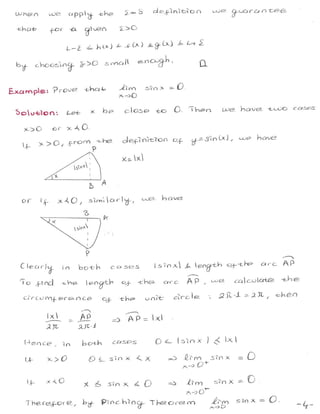 when we apply the ε-δ definition we guarantee
that for a given ε>0
L-ε < h(x) ≤ f(x) ≤ g(x) < L+ε
by choosing δ>0 small enough. □
Example: Prove that lim sin x = 0.
x→0
Solution: Let x be close to 0. Then we have two cases
x>0 or x<0.
If x>0, from the definition of y=sin(x), we have
P
x=|x|
|sinx|
x
B A
or if x<0, similarly, we have
B
x A
|sinx|
P
Clearly in both cases |sinx| ≤ length of the arc AP
To find the length of the arc AP, we calculate the
circumference of the unit circle : 2π·1 = 2π, then
|x| / 2π = AP / 2π·1 ⇒ AP = |x|
Hence, in both cases 0 ≤ |sin x| ≤ |x|
If x>0 0 ≤ sin x ≤ x ⇒ lim sin x = 0
x→0⁺
If x<0 x ≤ sin x ≤ 0 ⇒ lim sin x = 0.
x→0⁻
Therefore, by Pinching Theorem lim sin x = 0.
x→0
-4-